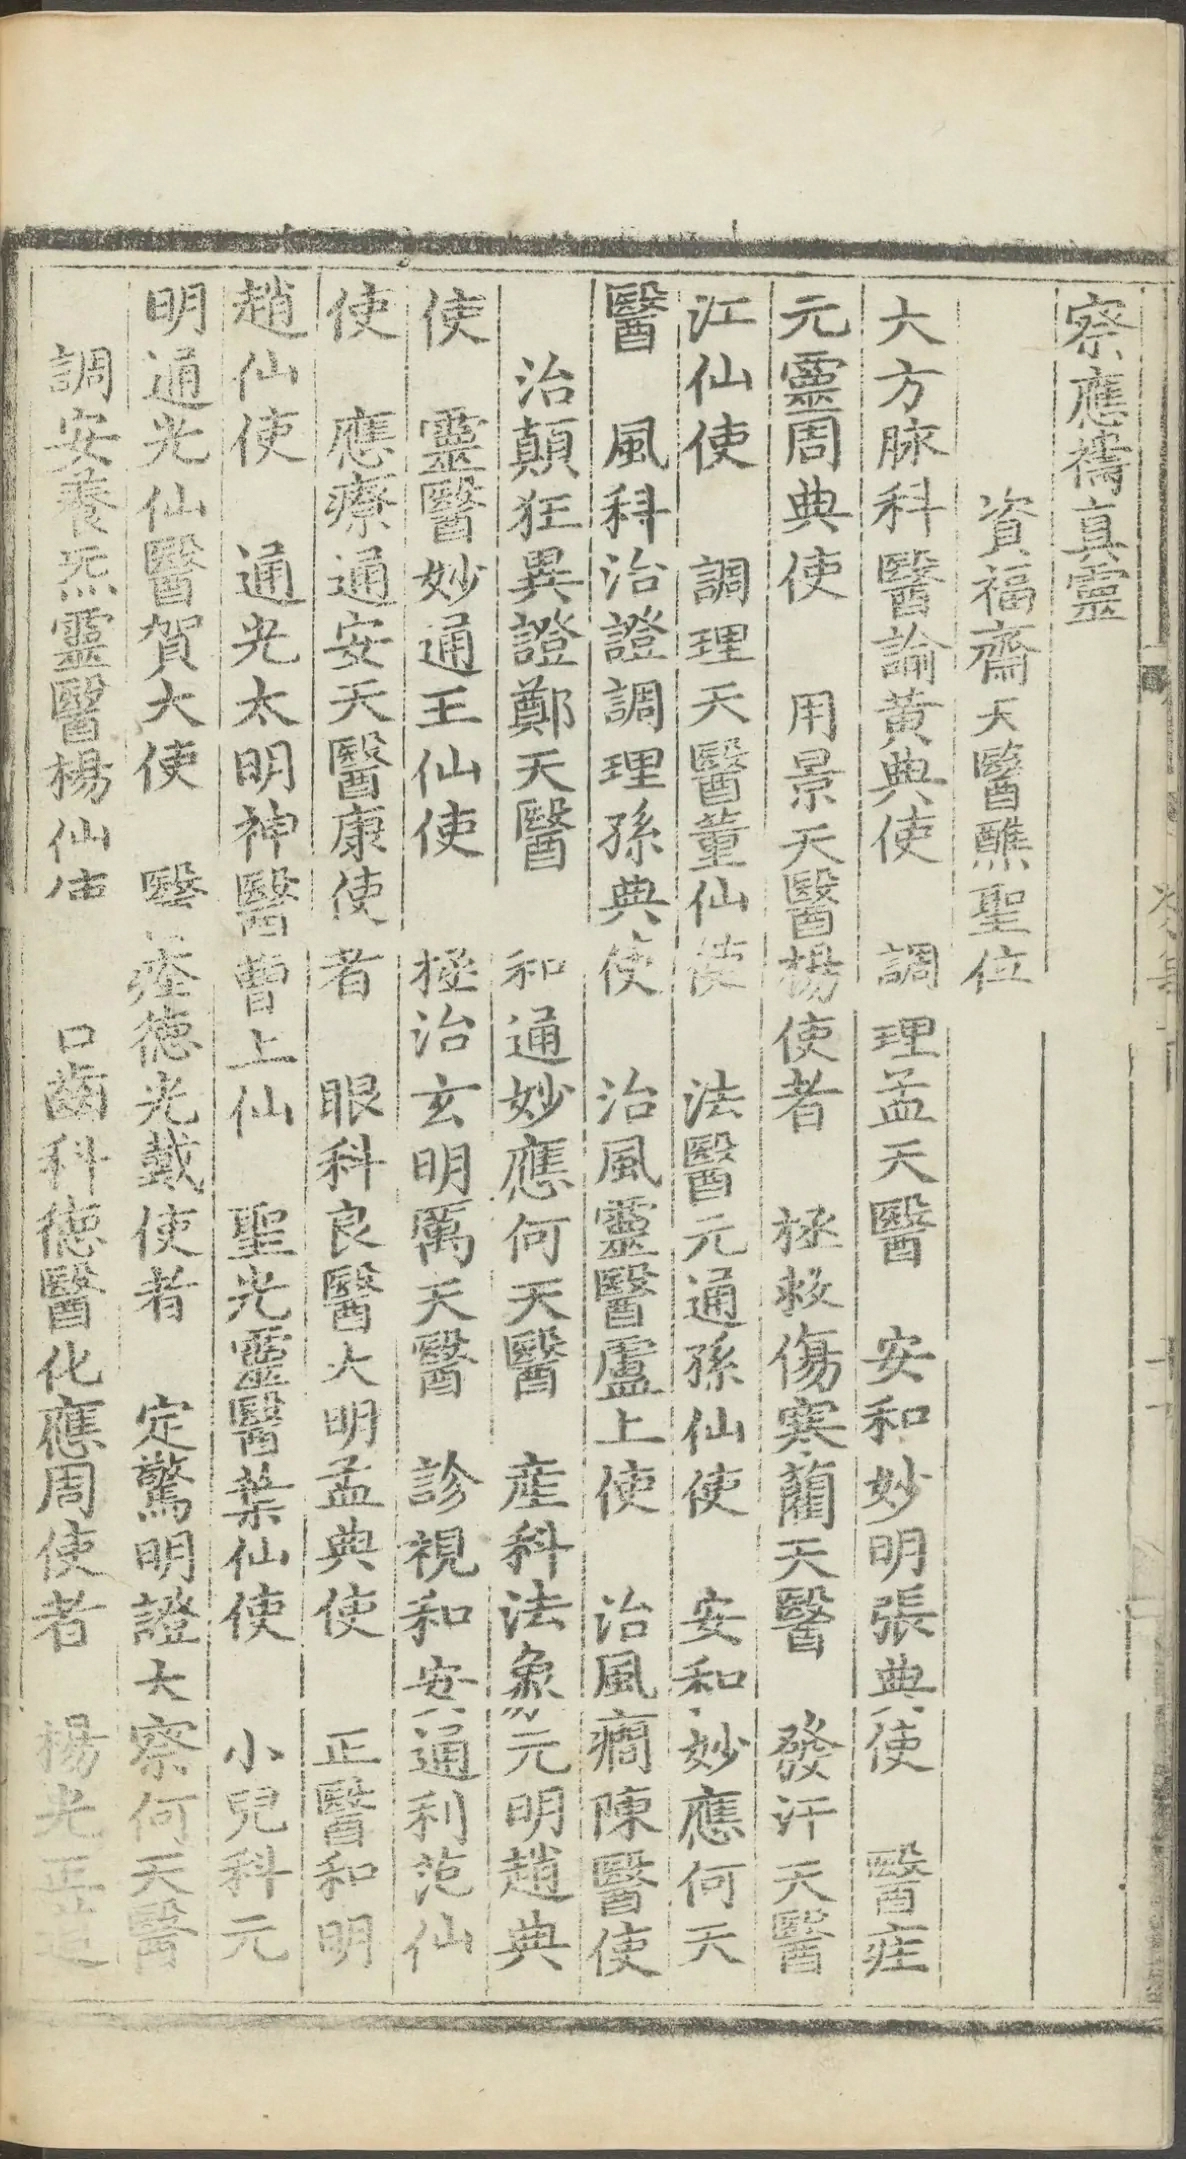 察應禱真靈
資福齋天醫醮聖位
大方脉科醫論黄典使　調理孟天醫　安和妙明張典使　醫疰
元靈周典使　用景天醫楊使者　拯救傷寒藺天醫　發汗天醫
江仙使　調理天醫董仙使　法醫元通孫仙使　安和妙應何天
醫　風科治證調理孫典使　治風靈醫盧上使　治風癎陳醫使
治顛狂異證鄭天醫　和通妙應何天醫　産科法象元明趙典
使　靈醫妙通王仙使　拯治玄明厲天醫　診視和安通利范仙
使　應療通安天醫康使者　眼科良醫大明孟典使　正醫和明
趙仙使　通光太明神醫曹上仙　聖光靈醫葉仙使　小兒科元
明通光仙醫賀大使　醫痊德光戴使者　定驚明證大察何天醫
調安養炁靈醫楊仙使　口齒科德醫化應周使者　楊光正